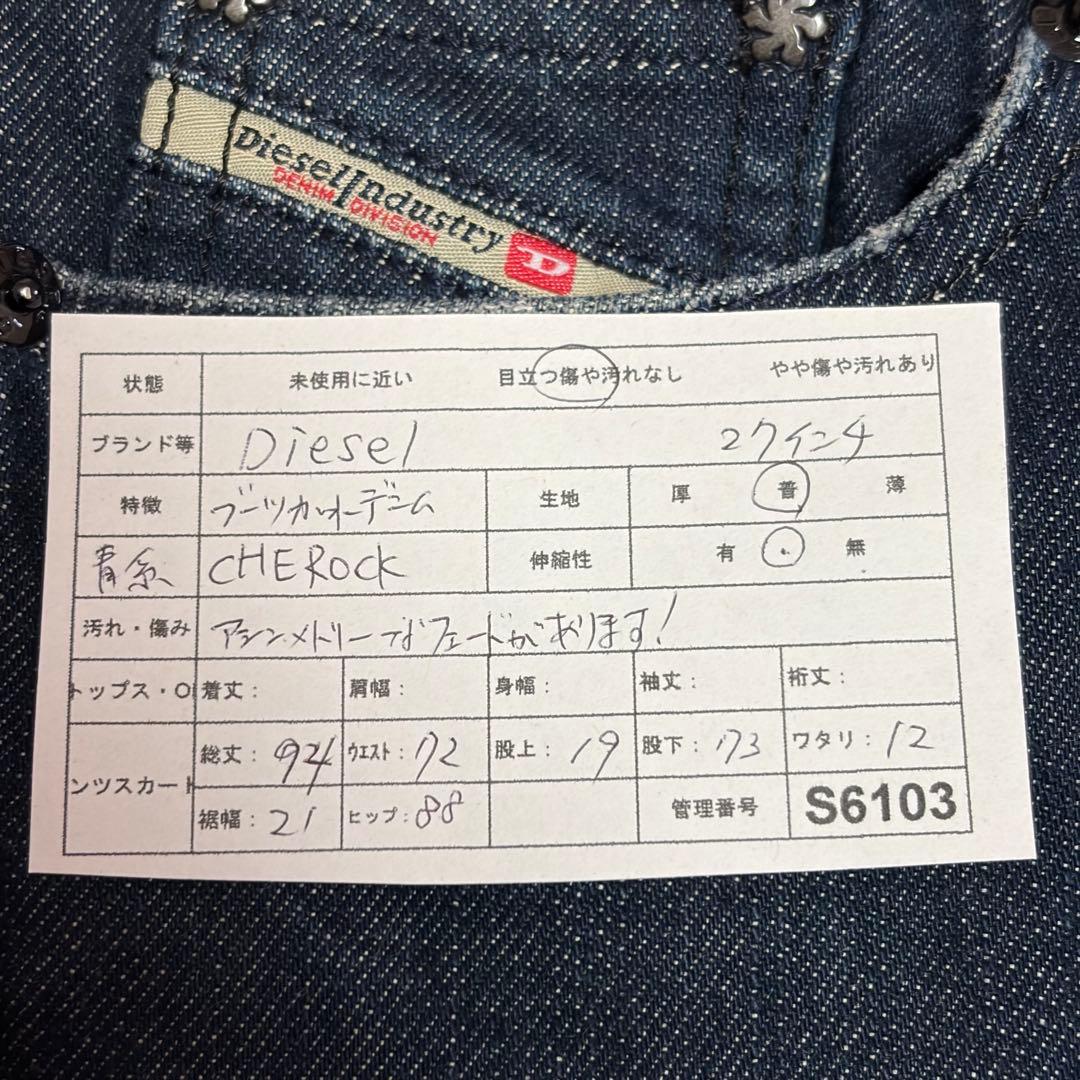 DieselIndustry D
DENIM DIVISION
状態 未使用に近い 目立つ傷や汚れなし やや傷や汚れあり
ブランド等 Diesel 27インチ
特徴 ブーツカットデニム 生地 厚 普 薄
青系 CHEROCK 伸縮性 有 ・ 無
汚れ・傷み アシンメトリーなフェードがあります!
トップス・O 着丈: 肩幅: 身幅: 袖丈: 裄丈:
ンツスカート 総丈: 94 ウエスト: 72 股上: 19 股下: 73 ワタリ: 12
裾幅: 21 ヒップ: 88 管理番号 S6103